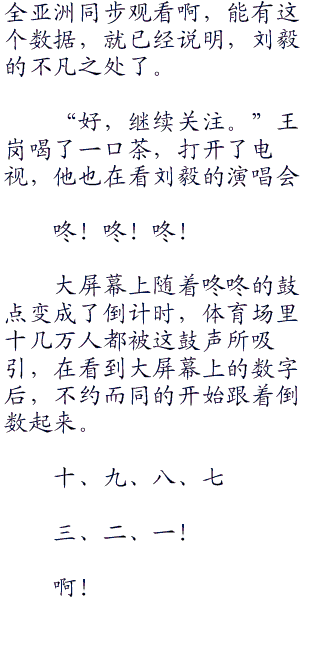 全亚洲同步观看啊，能有这
个数据，就已经说明，刘毅
的不凡之处了。
“好，继续关注。”王
岗喝了一口茶，打开了电
视，他也在看刘毅的演唱会
咚！咚！咚！
大屏幕上随着咚咚的鼓
点变成了倒计时，体育场里
十几万人都被这鼓声所吸
引，在看到大屏幕上的数字
后，不约而同的开始跟着倒
数起来。
十、九、八、七
三、二、一！
啊！